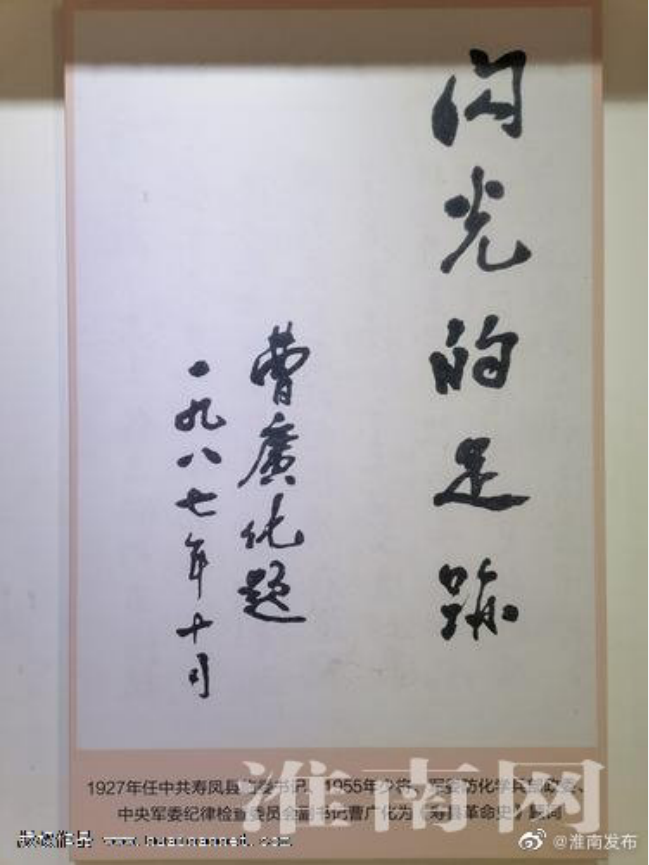 闪光的足跡
曹廣化题
一九八七年十月
1927年任中共寿凤县临委书记、1955年少将、军委防化学兵部政委、
中央军委纪律检查委员会副书记曹广化为《寿县革命史》题词
淮南网
www.huainannet.com
@淮南发布